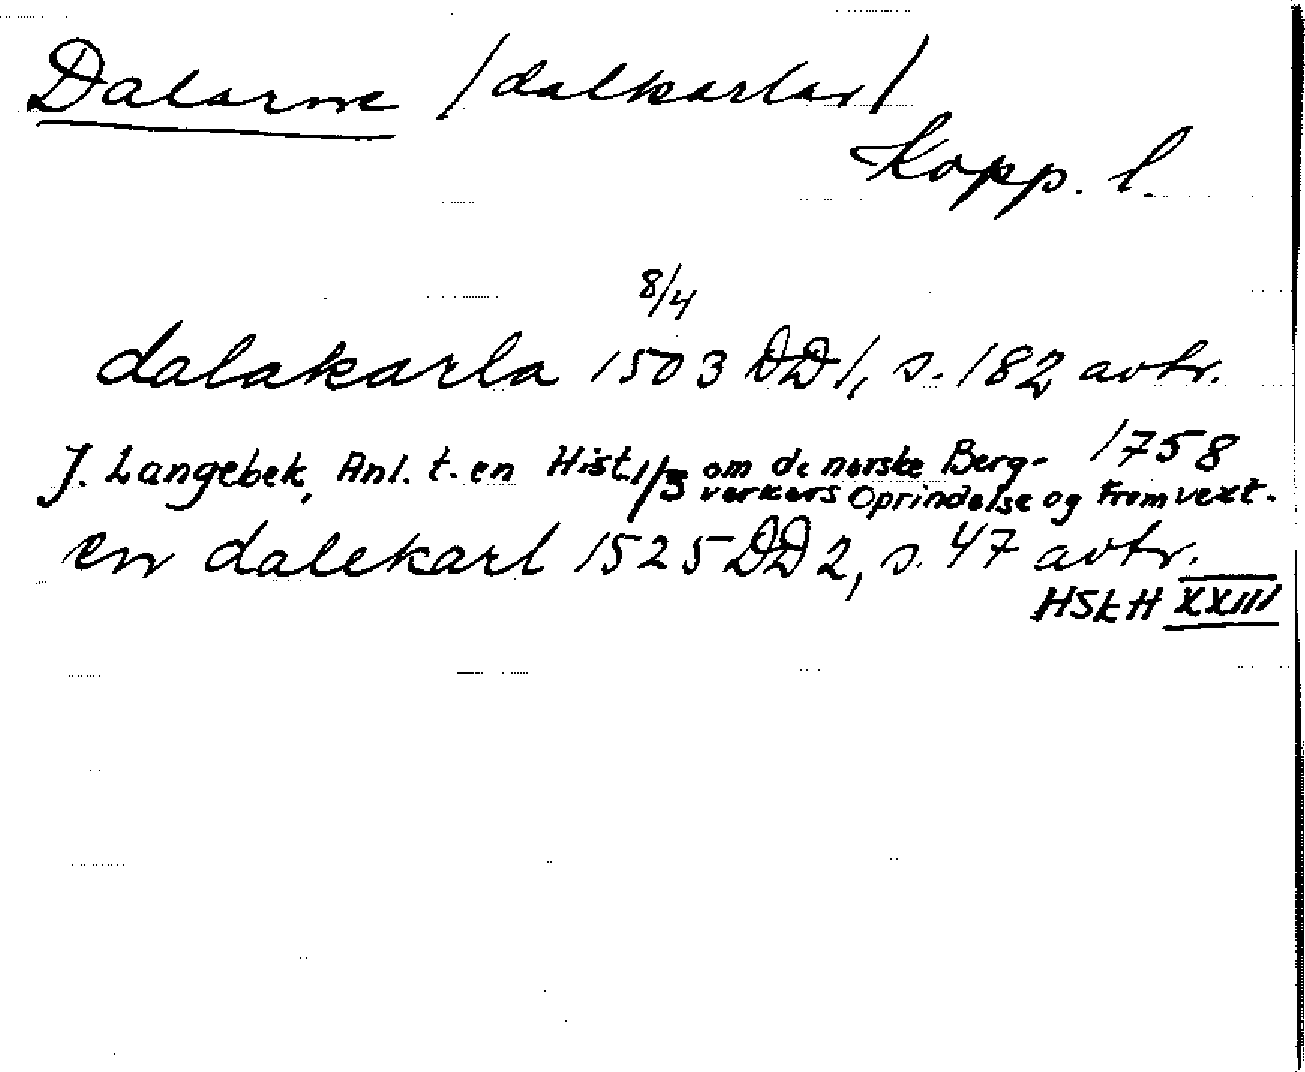 Dalarne /dalkarlar/
Kopp. l.
8/4
dalakarla 1503 DD 1, s. 182 avtr.
J. Langebek, Anl. t. en Hist. om de norske Berg- 1758
verkers Oprindelse og Fremvext.
1/3
en dalekarl 1525 DD 2, s. 47 avtr.
HSkH XXIII